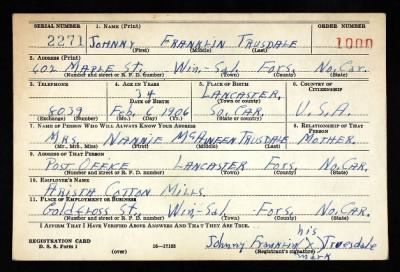 SERIAL NUMBER 1. NAME (Print) ORDER NUMBER
2271 JOHNNY FRANKLIN TRUSDALE 1000
(First) (Middle) (Last)
2. ADDRESS (Print)
602 MAPLE St. Win.-Sal. Fors. No. Car.
(Number and street or R. F. D. number) (Town) (County) (State)
3. TELEPHONE 4. AGE IN YEARS 5. PLACE OF BIRTH 6. COUNTRY OF CITIZENSHIP
34 LANCASTER,
DATE OF BIRTH (Town or county)
8039 Feb. 1906 So. CAR. U.S.A.
(Exchange) (Number) (Mo.) (Day) (Yr.) (State or country)
7. NAME OF PERSON WHO WILL ALWAYS KNOW YOUR ADDRESS 8. RELATIONSHIP OF THAT PERSON
MRS. NANNIE TRUSDALE MOTHER.
(Mr., Mrs., Miss) (First) (Middle) (Last)
9. ADDRESS OF THAT PERSON
POST OFFICE LANCASTER Fors. No. CAR.
(Number and street or R. F. D. number) (Town) (County) (State)
10. EMPLOYER'S NAME
ARISTA COTTON MILLS.
11. PLACE OF EMPLOYMENT OR BUSINESS
Goldfloss St. Win.-Sal. Fors. No. CAR.
(Number and street or R. F. D. number) (Town) (County) (State)
I AFFIRM THAT I HAVE VERIFIED ABOVE ANSWERS AND THAT THEY ARE TRUE.
his
REGISTRATION CARD Johnny Franklin X Truesdale
D. S. S. Form 1 (over) 16—17105 (Registrant's signature)
mark